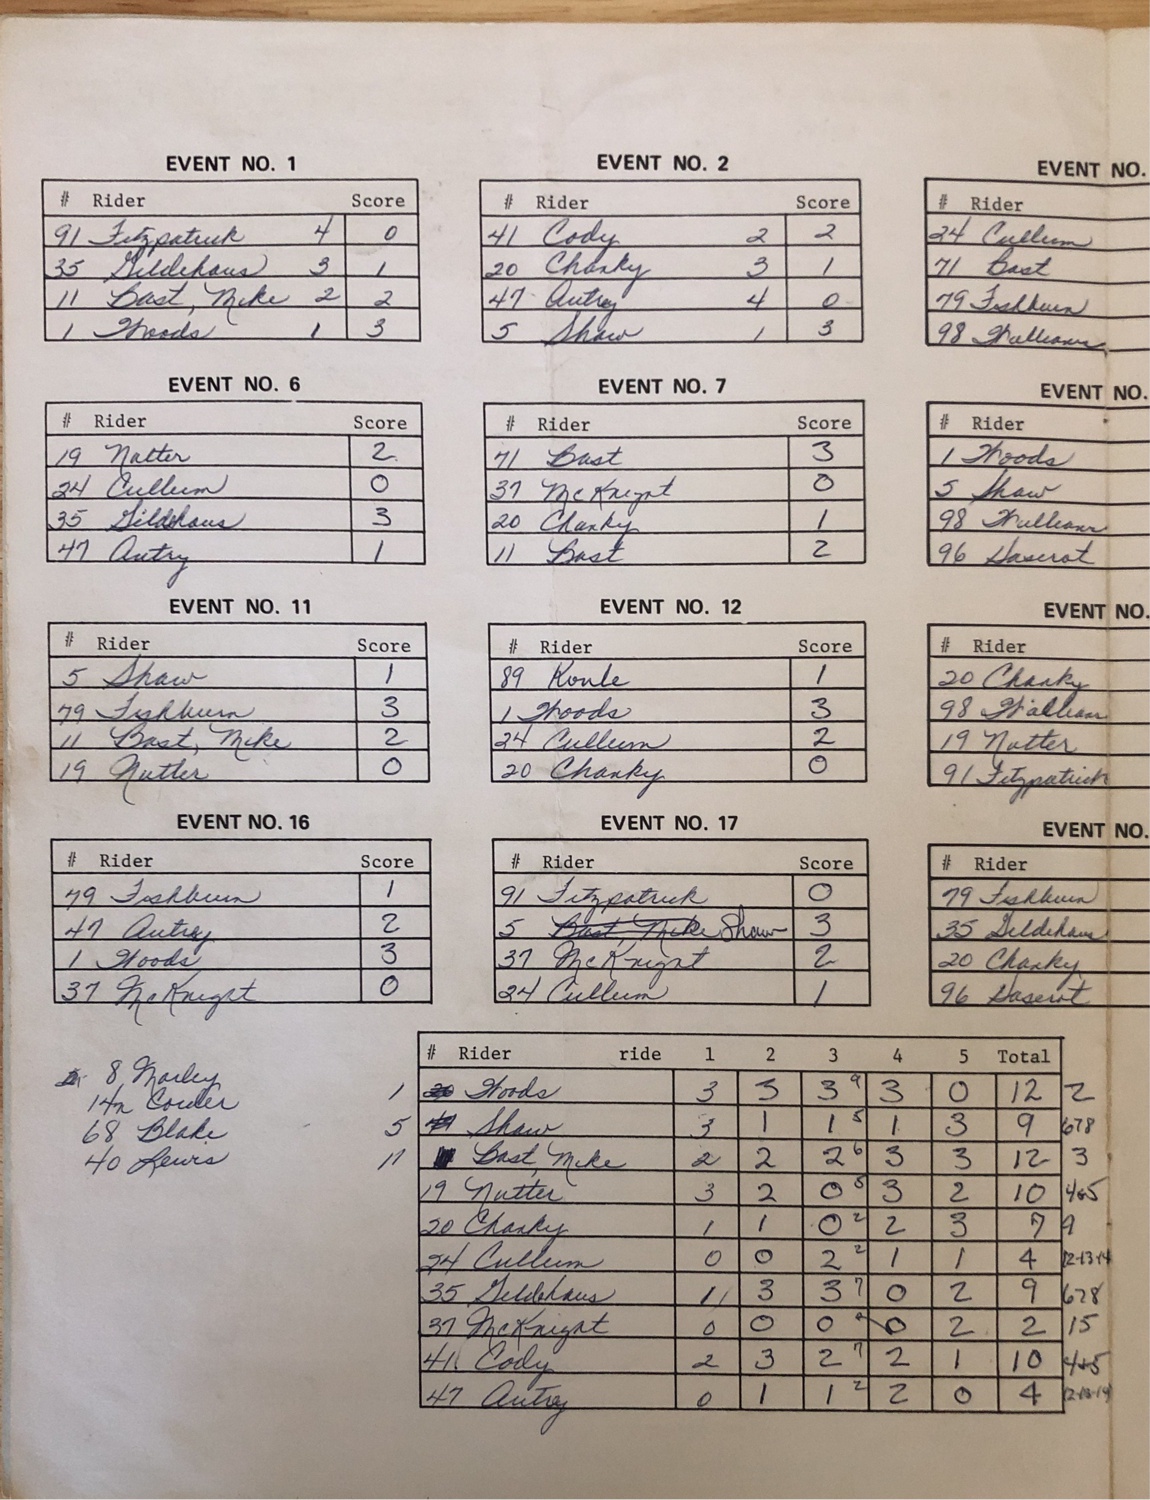 EVENT NO. 1
# Rider Score
91 Fitzpatrick 4 0
35 Gildehaus 3 1
11 Bast, Mike 2 2
1 Woods 1 3
EVENT NO. 2
# Rider Score
41 Cody 2 2
20 Chanky 3 1
47 Autrey 4 0
5 Shaw 1 3
EVENT NO.
# Rider
24 Cullum
71 Bast
79 Fishburn
98 Williams
EVENT NO. 6
# Rider Score
19 Nutter 2
24 Cullum 0
35 Gildehaus 3
47 Autry 1
EVENT NO. 7
# Rider Score
71 Bast 3
37 McKnight 0
20 Chanky 1
11 Bast 2
EVENT NO.
# Rider
1 Woods
5 Shaw
98 Williams
96 Haserot
EVENT NO. 11
# Rider Score
5 Shaw 1
79 Fishburn 3
11 Bast, Mike 2
19 Nutter 0
EVENT NO. 12
# Rider Score
89 1
1 Woods 3
24 Cullum 2
20 Chanky 0
EVENT NO.
# Rider
20 Chanky
98 William
19 Nutter
91 Fitzpatrick
EVENT NO. 16
# Rider Score
79 Fishburn 1
47 Autrey 2
1 Woods 3
37 McKnight 0
EVENT NO. 17
# Rider Score
91 Fitzpatrick 0
5 Bast, Mike Shaw 3
37 McKnight 2
24 Cullum 1
EVENT NO.
# Rider
79 Fishburn
35 Gildehaus
20 Chanky
96 Haserot
8 Norley
14n Corder
68 Blake
40 Lewis
# Rider ride 1 2 3 4 5 Total
1 Woods 3 3 3 9 3 0 12 2
5 Shaw 3 1 1 5 1 3 9 678
11 Bast, Mike 2 2 2 6 3 3 12 3
19 Nutter 3 2 0 5 3 2 10 4+5
20 Chanky 1 1 0 2 2 3 7 9
24 Cullum 0 0 2 2 1 1 4 12-13-14
35 Gildehaus 1 3 3 7 0 2 9 678
37 McKnight 0 0 0 0 2 2 15
41 Cody 2 3 2 7 2 1 10 4+5
47 Autrey 0 1 1 2 2 0 4 12-13-14